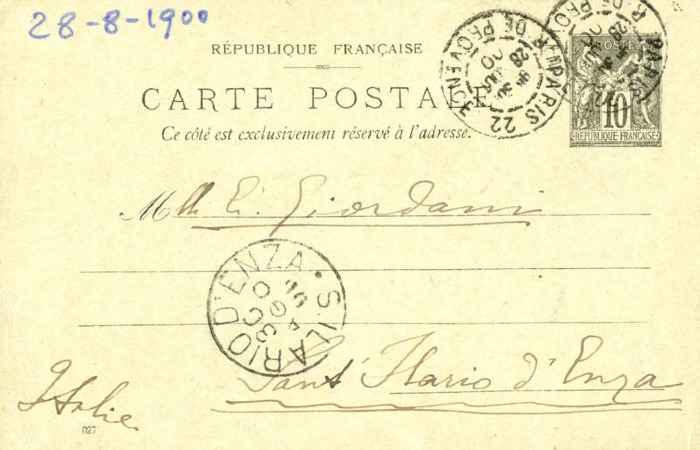 28-8-1900
RÉPUBLIQUE FRANÇAISE
CARTE POSTALE
Ce côté est exclusivement réservé à l'adresse.
PARIS 22
R. DE PROVENCE
28
AOUT
00
PARIS 22
R. DE PROV
28
POSTES
10
REPUBLIQUE FRANÇAISE
Mlle Giordani
S. ILARIO D'ENZA
30
AGO
00
Sant' Ilario d'Enza
Italie
027